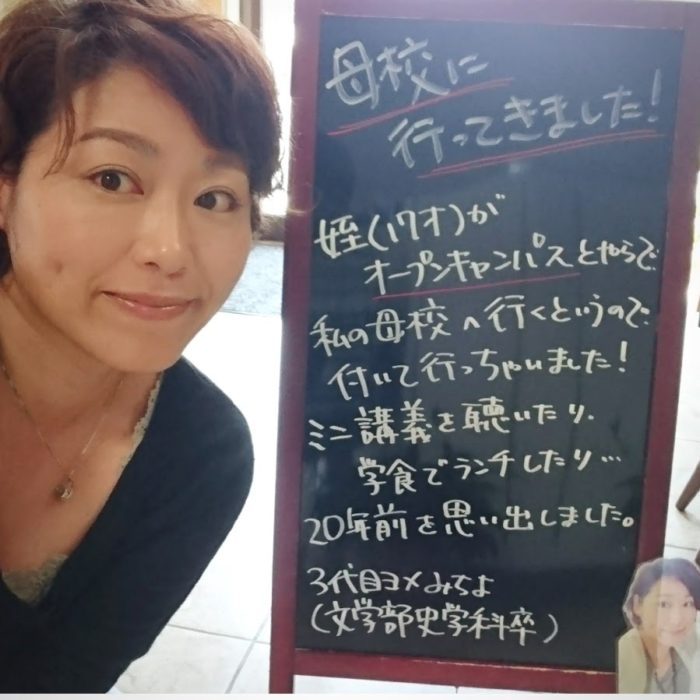 母校に
行ってきました!
姪(17才)が
オープンキャンパスとやらで
私の母校へ行くというので
付いて行っちゃいました!
ミニ講義を聴いたり、
学食でランチしたり…
20年前を思い出しました。
3代目ヨメみちよ
(文学部史学科卒)